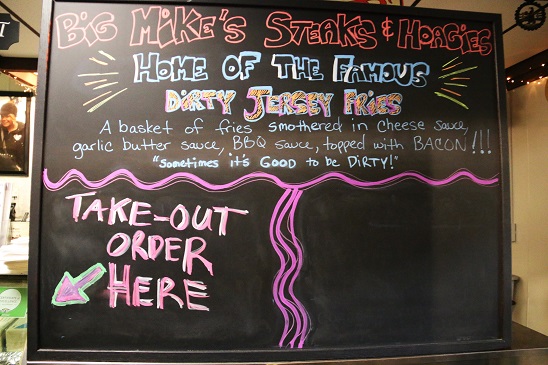 BIG MIKE'S STEAKS & HOAGIES
HOME OF THE FAMOUS
DIRTY JERSEY FRIES
A basket of fries smothered in cheese sauce,
garlic butter sauce, BBQ sauce, topped with BACON!!!
"Sometimes it's GOOD to be DIRTY!"
TAKE-OUT
ORDER
HERE